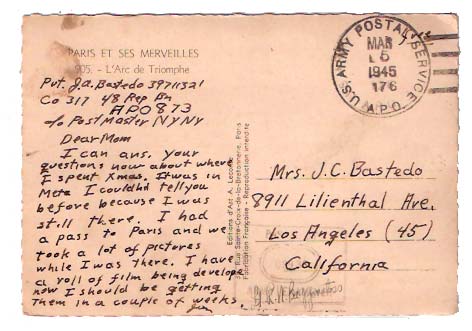 PARIS ET SES MERVEILLES
905. - L'Arc de Triomphe
Pvt. J.A. Bastedo 39711321
Co 317 48 Rep Bn
APO 873
c/o Post Master NY NY
Dear Mom
I can ans. your
questions now about where
I spent Xmas. It was in
Metz I couldn't tell you
before because I was
still there. I had
a pass to Paris and we
took a lot of pictures
while I was there. I have
a roll of film being develope
now I should be getting
them in a couple of weeks.
Jim
Editions d'Art A. Leconte
38, Rue Sainte-Croix-de-la-Bretonnerie, Paris
Fabrication Française - Reproduction interdite
U.S. ARMY POSTAL SERVICE
MAR
5
1945
176
A.P.O.
Mrs. J.C. Bastedo
8911 Lilienthal Ave.
Los Angeles (45)
California